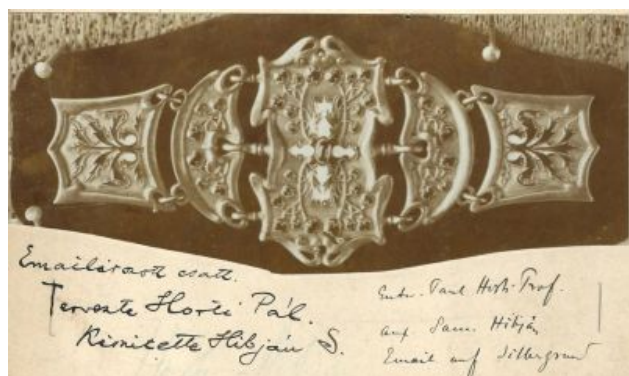 Emailirozott csatt.
Tervezte Horti Pál.
Készitette Hibján S.
Entw. Paul Horti Prof.
ausf. Sam. Hibján
Email auf Silbergrund